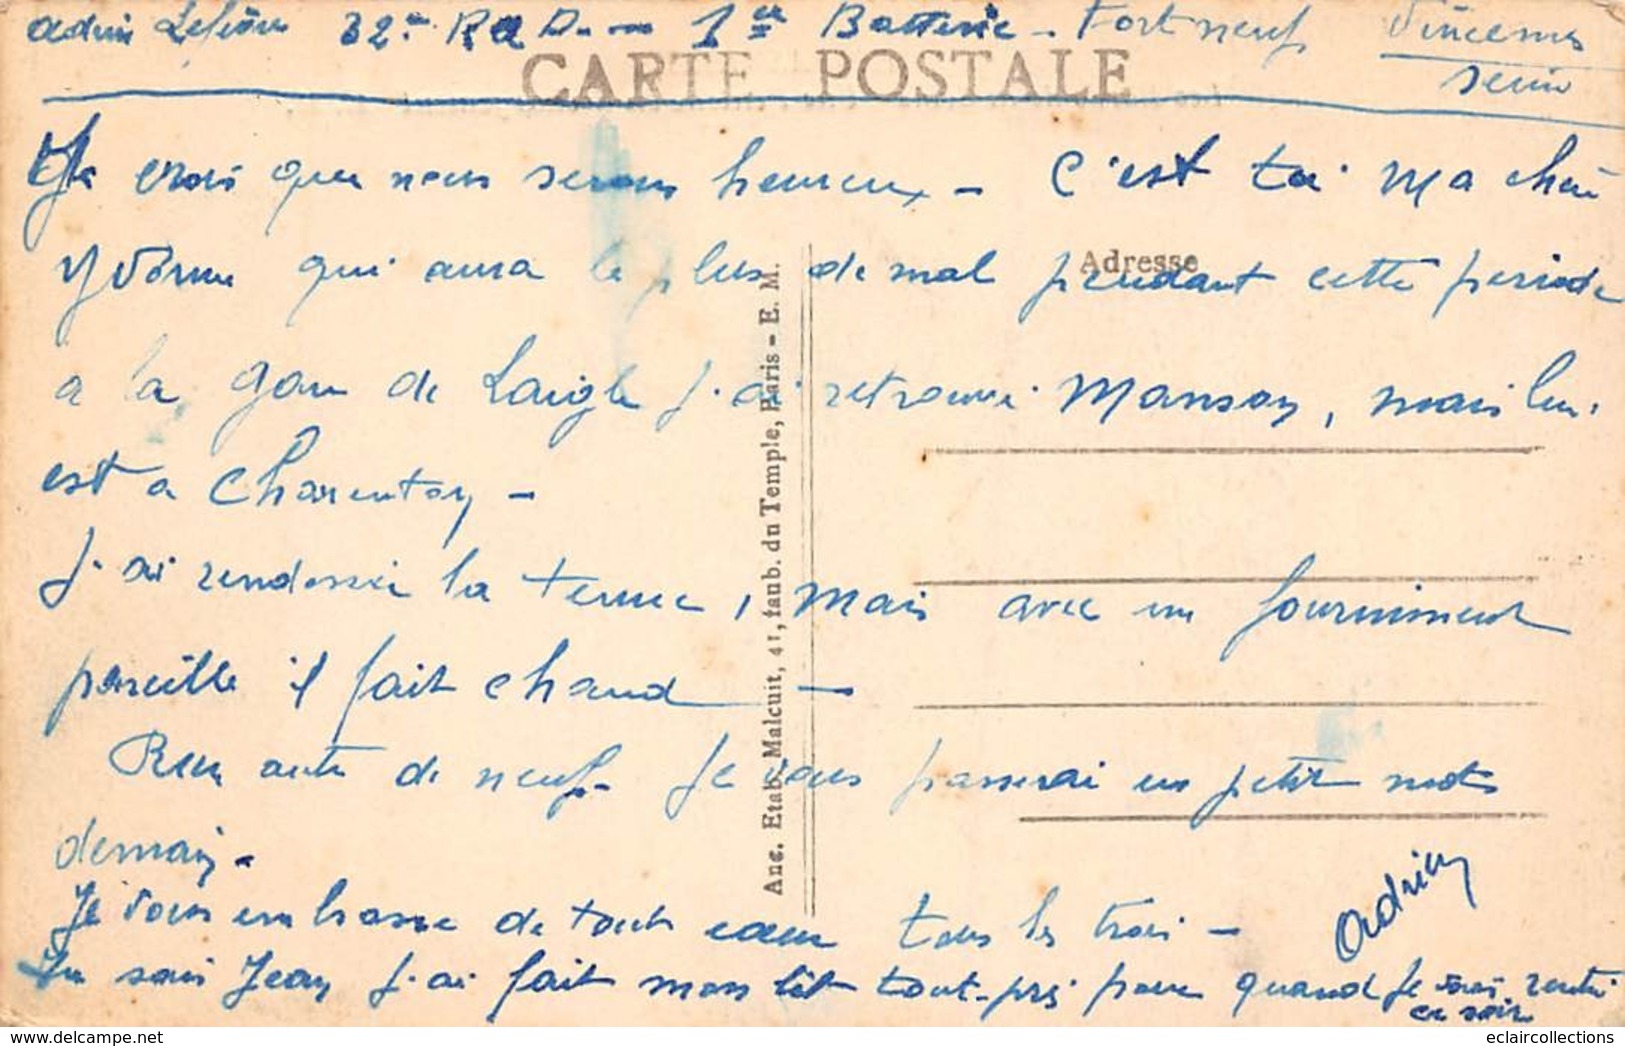 Adrien Lefèvre 32e R.A.D. — 1ère Batterie - Fort neuf Vincennes
Seine
CARTE POSTALE
Je crois que nous serons heureux - C'est toi ma chère
Yvonne qui aura le plus de mal pendant cette periode
Adresse
a la gare de Laigle j'ai retrouvé Manson, mais lui
est a Charenton -
J'ai rendossé la tenue, mais avec un fourniment
pareille il fait chaud —
Rien autre de neuf. Je vous passerai un petit mots
demain -
Je vous embrasse de tout cœur tous les trois -
Adrien
Tu sais Jean j'ai fait mon lit tout-pris pour quand je vais rentré
ce soir
Anc. Etab. Malcuit, 41, faub. du Temple, Paris - E. M.
eclaircollections